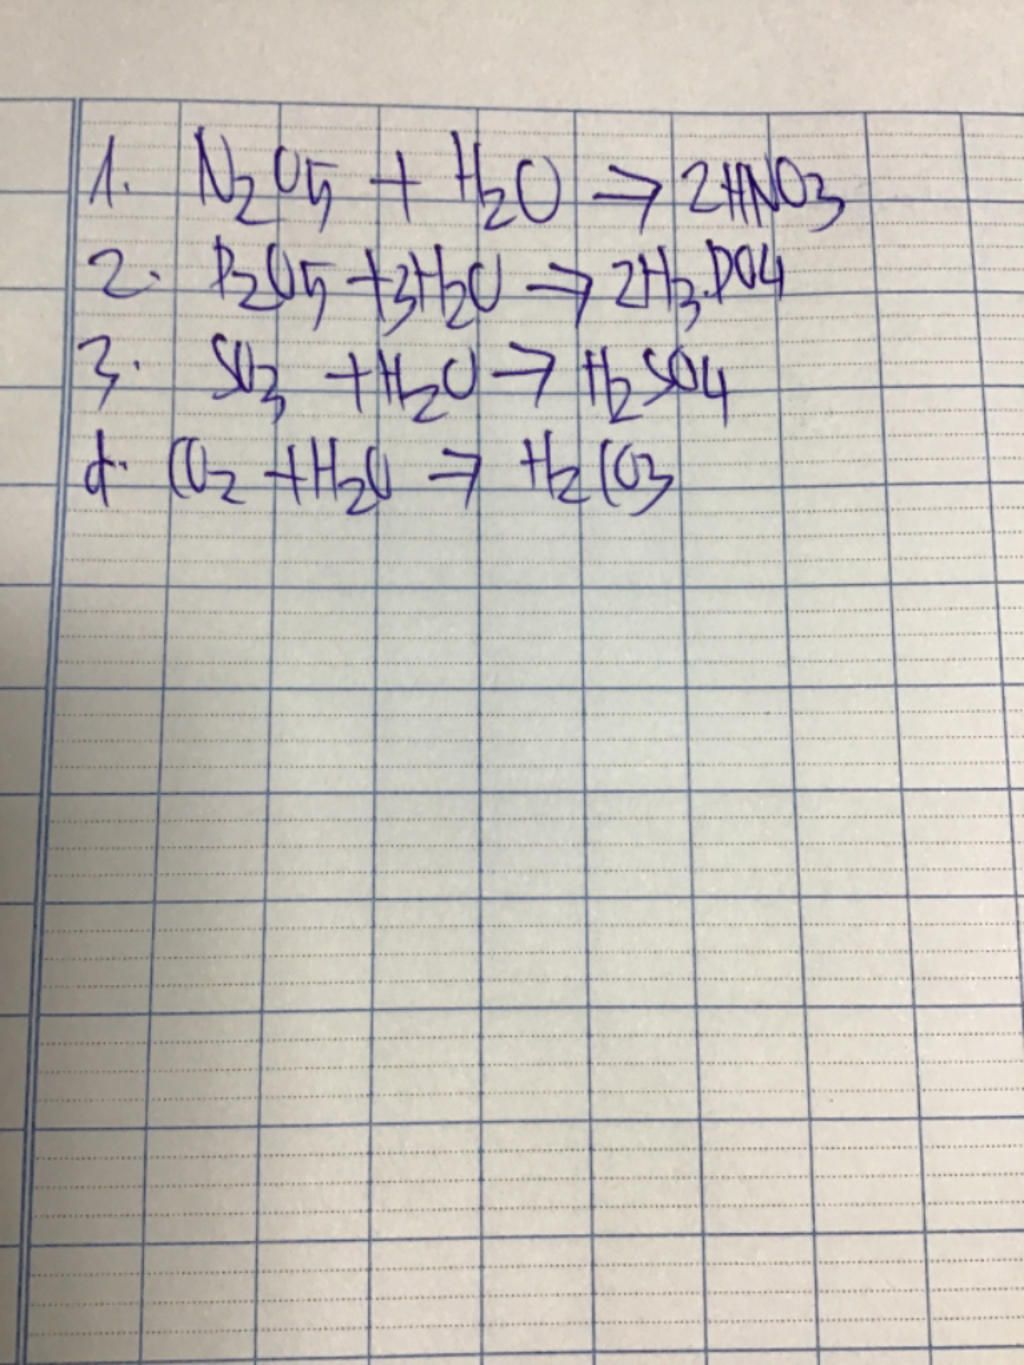 1. N2O5 + H2O → 2HNO3
2. P2O5 + 3H2O → 2H3PO4
3. SO3 + H2O → H2SO4
d. CO2 + H2O → H2CO3